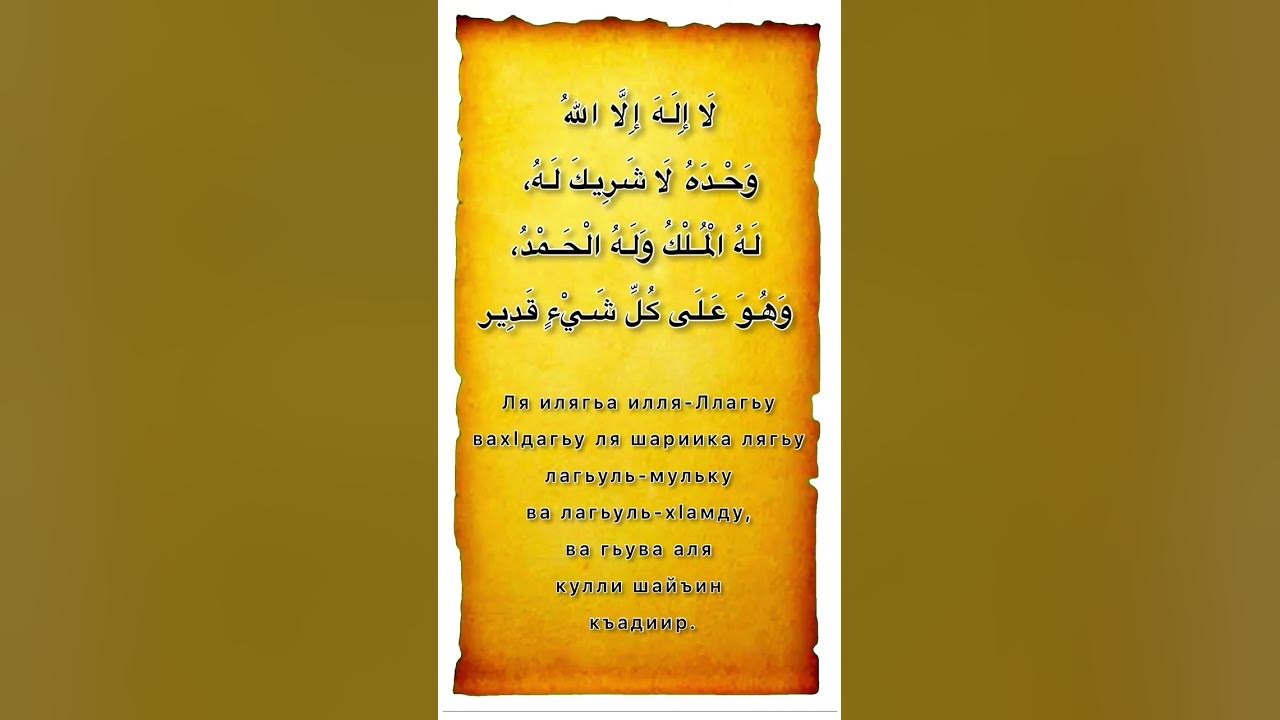 لَا إِلَـهَ إِلَّا اللهُ
وَحْـدَهُ لَا شَـرِيـكَ لَـهُ،
لَـهُ الْمُـلْكُ وَلَـهُ الْـحَـمْـدُ،
وَهُـوَ عَـلَـى كُلِّ شَـيْءٍ قَـدِيـر
Ля илягьа илля-Ллагьу
вахӀдагьу ля шариика лягьу
лагьуль-мульку
ва лагьуль-хӀамду,
ва гьува аля
кулли шайъин
къадиир.